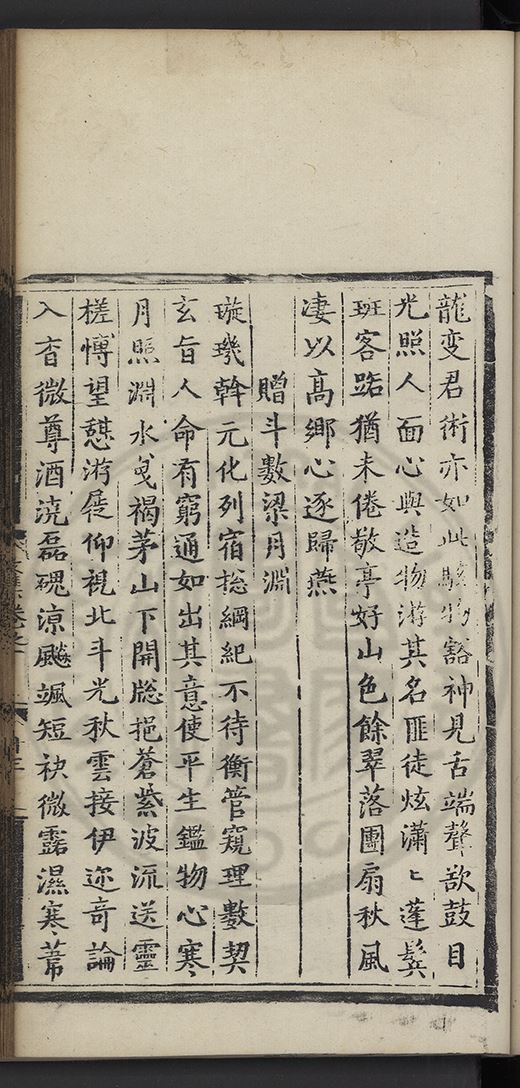 龍变君術亦如此駭物豁神見舌端聲欲鼓目
光照人面心與造物游其名匪徒炫瀟〻蓬鬓
斑客路猶未倦敬亭好山色餘翠落團扇秋風
凄以高鄉心逐歸燕
贈斗數梁月淵
璇璣斡元化列宿緫綱紀不待衡管窺理數契
玄旨人命有窮通如出其意使平生鑑物心寒
月照淵水曳褐茅山下開牕挹蒼紫波流送靈
槎慱望憇游屣仰視北斗光秋雲接伊迩竒論
入杳微尊酒澆磊磈凉飈颯短袂微露濕寒葦